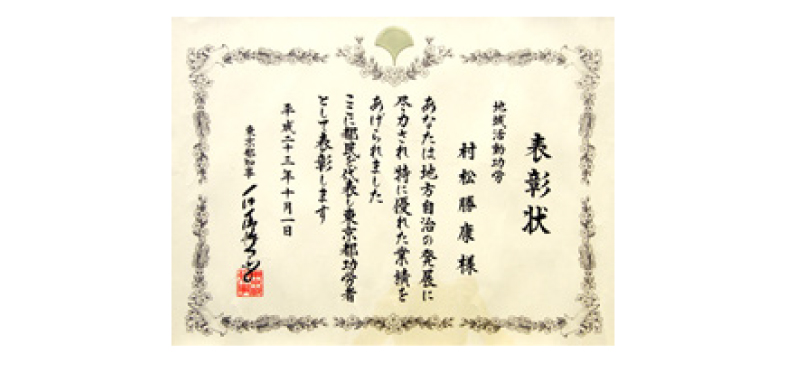 表彰状
地域活動功労
村松勝康様
あなたは地方自治の発展に
尽力され特に優れた業績を
あげられました
ここに都民を代表し東京都功労者
として表彰します
平成二十三年十月一日
東京都知事